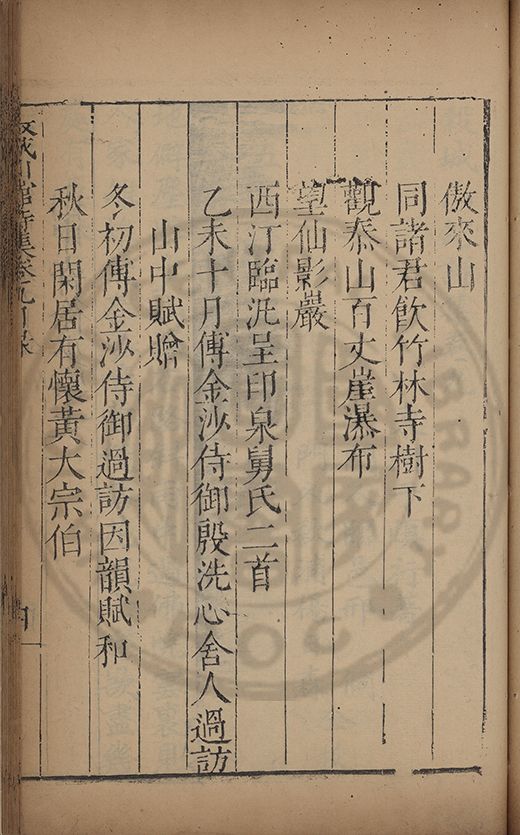 傲來山
同諸君飲竹林寺樹下
觀泰山百丈崖瀑布
望仙影巖
西汀臨汎呈印泉舅氏二首
乙未十月傅金沙侍御殷洗心舍人過訪
山中賦贈
冬初傅金沙侍御過訪因韻賦和
秋日閑居有懷黃大宗伯
集卷九目录